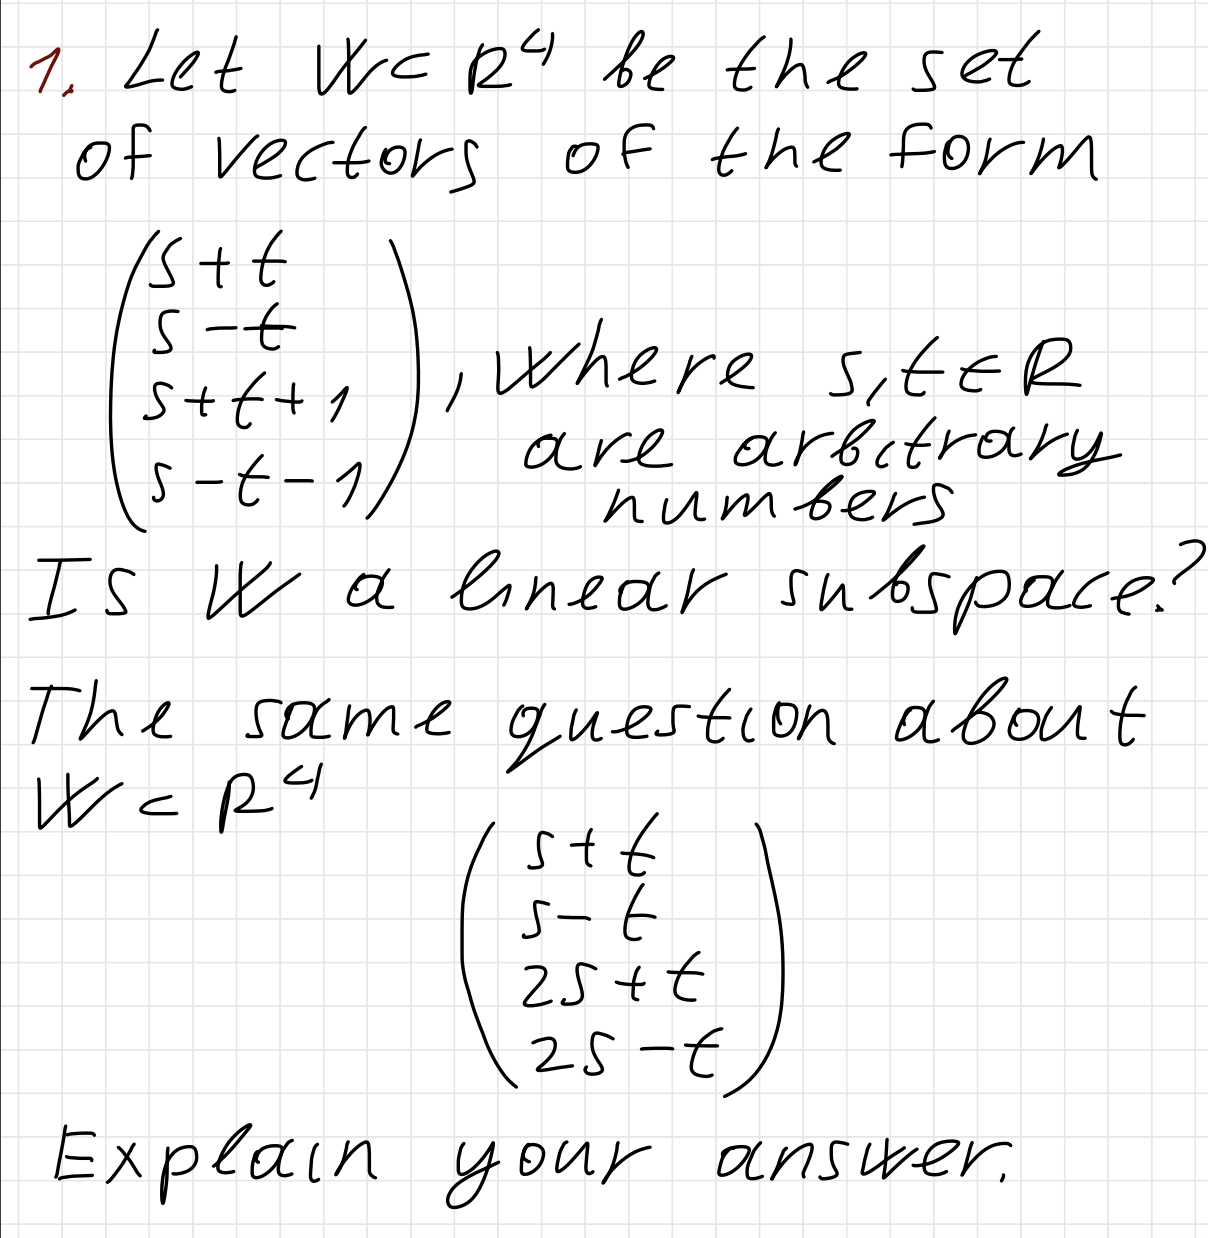 1. Let W ⊂ R⁴ be the set
of vectors of the form
s + t
s - t
s + t + 1
s - t - 1
, where s, t ∈ R
are arbitrary
numbers
Is W a linear subspace?
The same question about
W ⊂ R⁴
s + t
s - t
2s + t
2s - t
Explain your answer.